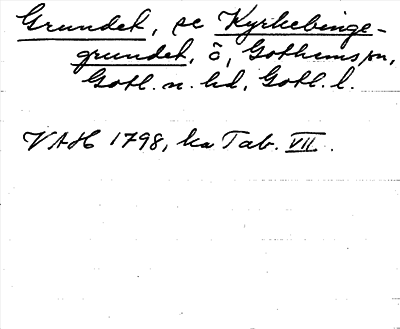 Grundet, se Kyrkebinge-
grundet, ö, Gothems sn,
Gotl. n. hd, Gotl. l.
VAH 1798, ka Tab. VII.